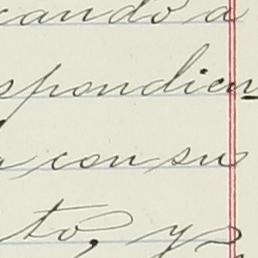 cando a
spondien
a con su
to, y